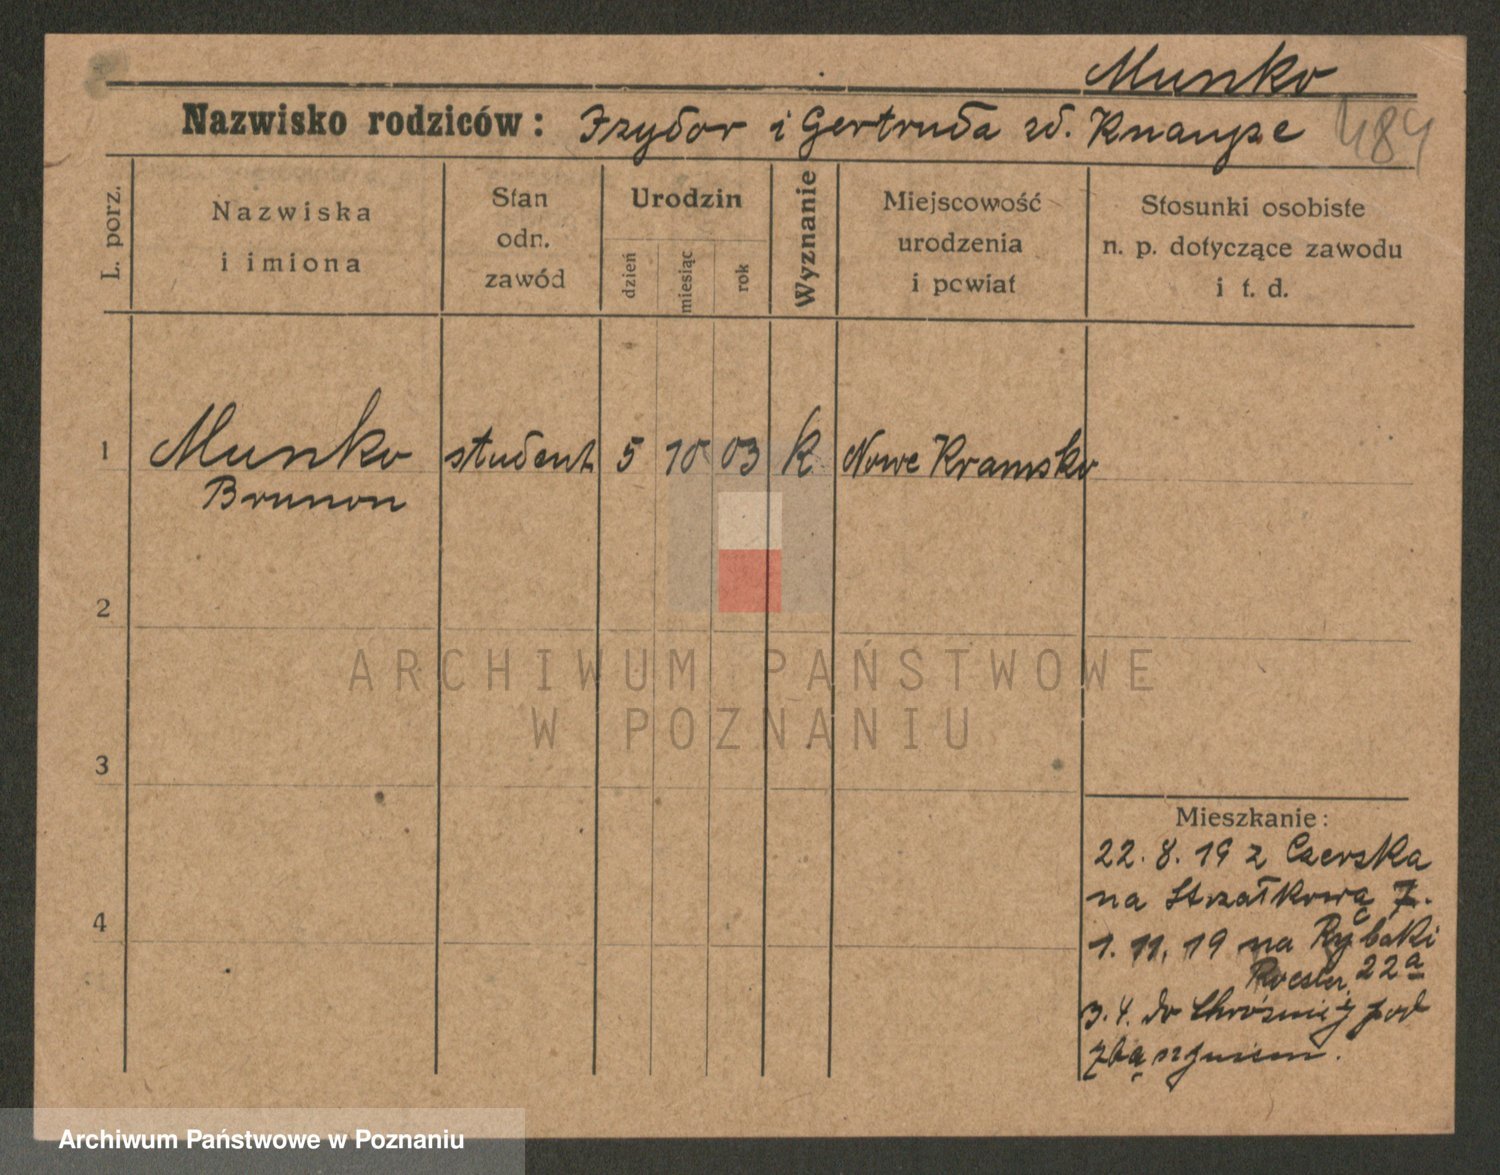 Munko
Nazwisko rodziców: Izydor i Gertruda zd. Knaupe
484
L. porz.
Nazwiska
i imiona
Stan
odn.
zawód
Urodzin
dzień
miesiąc
rok
Wyznanie
Miejscowość
urodzenia
i powiat
Stosunki osobiste
n. p. dotyczące zawodu
i t. d.
1
Munko
Brunon
student
5
10
03
k
Nowe Kramsko
2
3
4
Mieszkanie:
22. 8. 19 z Czerska
na Strzałkową 7.
1. 11. 19 na Rybaki
22a
3. 4. do Chrośnicy pod
Zbąszyniem.
ARCHIWUM PAŃSTWOWE
W POZNANIU
Archiwum Państwowe w Poznaniu